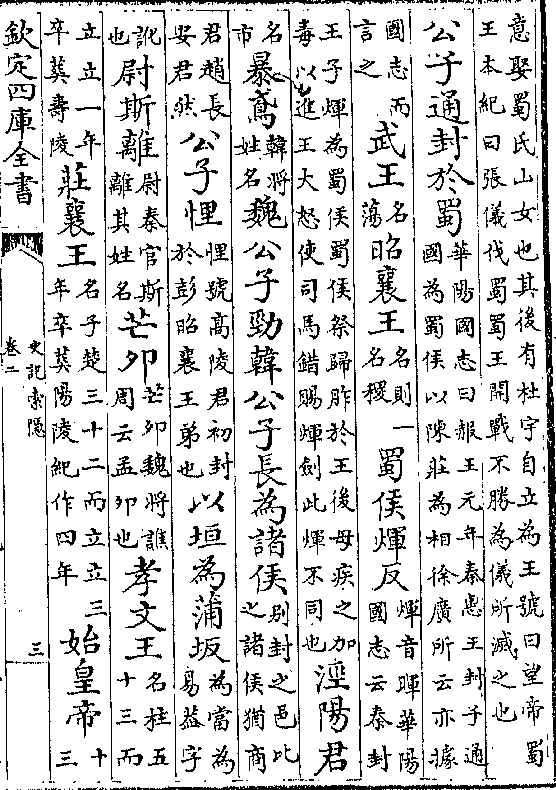 意娶蜀氏山女也其後有杜宇自立為王號曰望帝蜀
王本紀曰張儀伐蜀蜀王開戰不勝為儀所滅之也
公子通封於蜀華陽國志曰赧王元年秦惠王封子通國為蜀侯以陳莊為相徐廣所云亦據
國志而言之武王名蕩昭襄王名則一名稷蜀侯煇反煇音暉華陽國志云秦封
王子煇為蜀侯蜀侯祭歸胙於王後母疾之加毒以進王大怒使司馬錯賜煇劍此煇不同也涇陽君
名市暴鳶韓將姓名魏公子勁韓公子長為諸侯別封之邑比之諸侯猶商
君趙長安君然公子悝悝號高陵君初封於彭昭襄王弟也以垣為蒲坂為當為易蓋字
訛也尉斯離尉秦官斯離其姓名芒卯芒卯魏將譙周云孟卯也孝文王名柱五十三而
立立一年卒葬壽陵莊襄王名子楚三十二而立立三年卒葬陽陵紀作四年始皇帝十三
欽定四庫全書
史記索隱
卷二
三